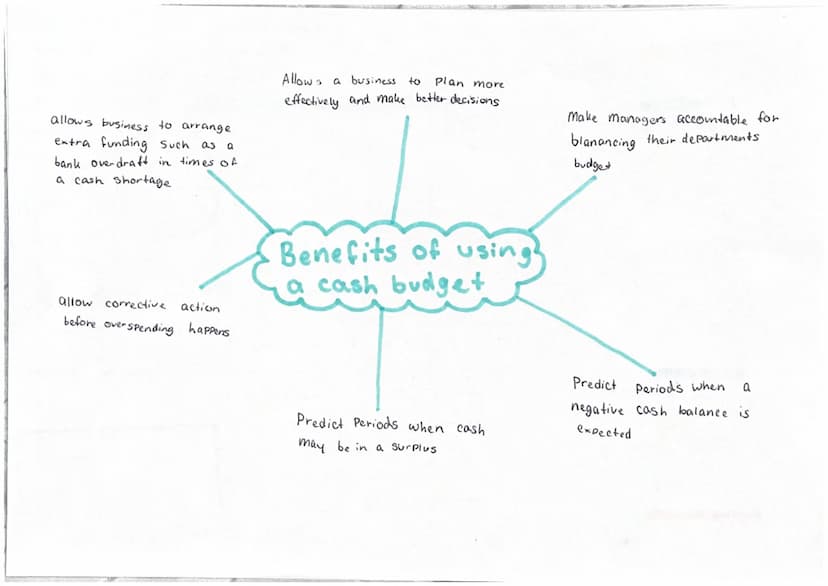 Benefits of using
a cash budget
Allows a business to plan more
effectively and make better decisions
Make managers accountable for
blanancing their departments
budget
Predict periods when a
negative cash balance is
expected
Predict Periods when cash
may be in a surplus
allow corrective action
before overspending happens
allows business to arrange
extra funding such as a
bank overdraft in times of
a cash shortage